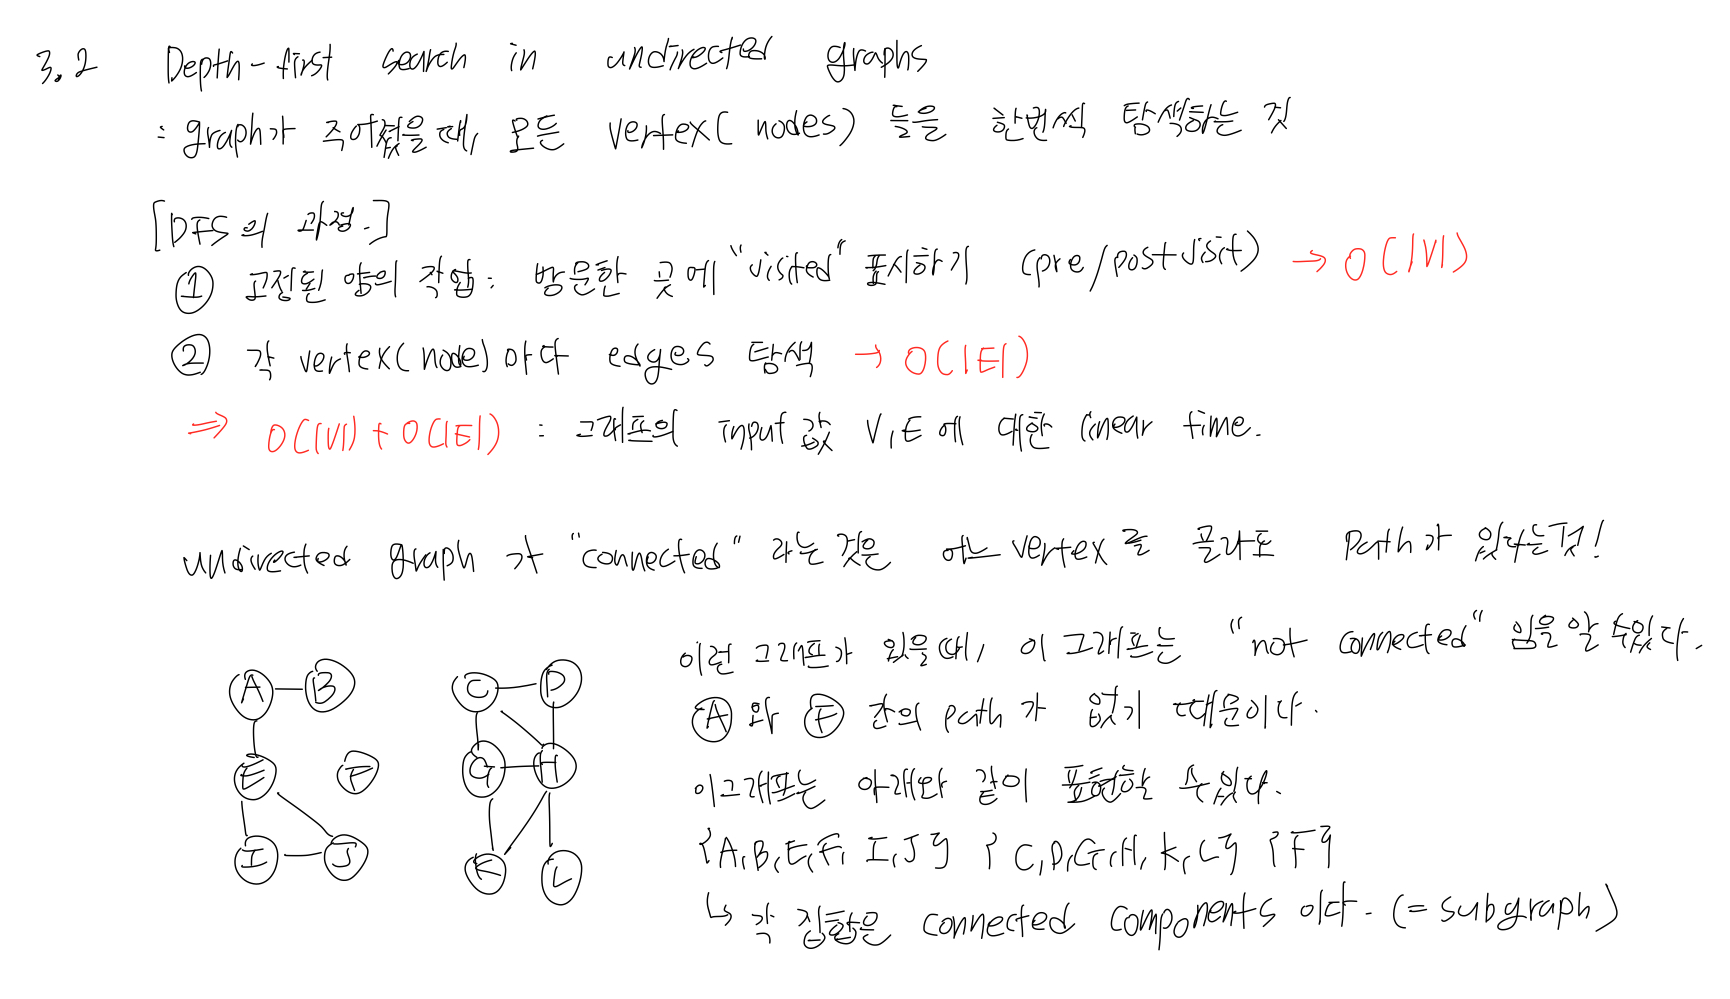 3.2 Depth-first search in undirected graphs
: graph가 주어졌을때, 모든 vertex(nodes) 들을 한번씩 탐색하는 것
[DFS의 과정.]
① 고정된 양의 작업: 방문한 곳에 "visited" 표시하기 (pre/postvisit) → O(|V|)
② 각 vertex(node)마다 edges 탐색 → O(|E|)
⇒ O(|V|) + O(|E|) : 그래프의 input 값 V,E에 대한 linear time.
undirected graph가 "connected" 라는 것은 어느 vertex를 골라도 path가 있다는것!
이런 그래프가 있을때, 이 그래프는 "not connected" 임을 알 수있다.
Ⓐ와 Ⓕ 간의 path가 없기 때문이다.
이그래프는 아래와 같이 표현할 수있다.
{A,B,E,F, I,J} {C,D,G,H,K,L} {F}
↳ 각 집합은 connected components 이다. (= subgraph)
A B C D
E F G H
I J K L